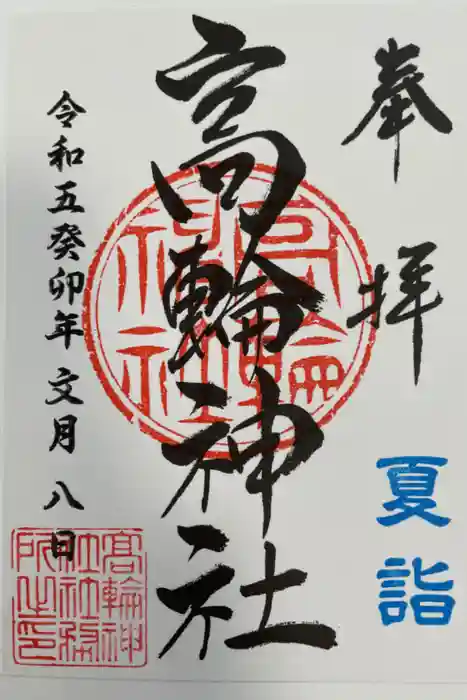 奉拝
夏詣
高輪神社
高輪神社
令和五癸卯年文月八日
高輪神社社務所之印